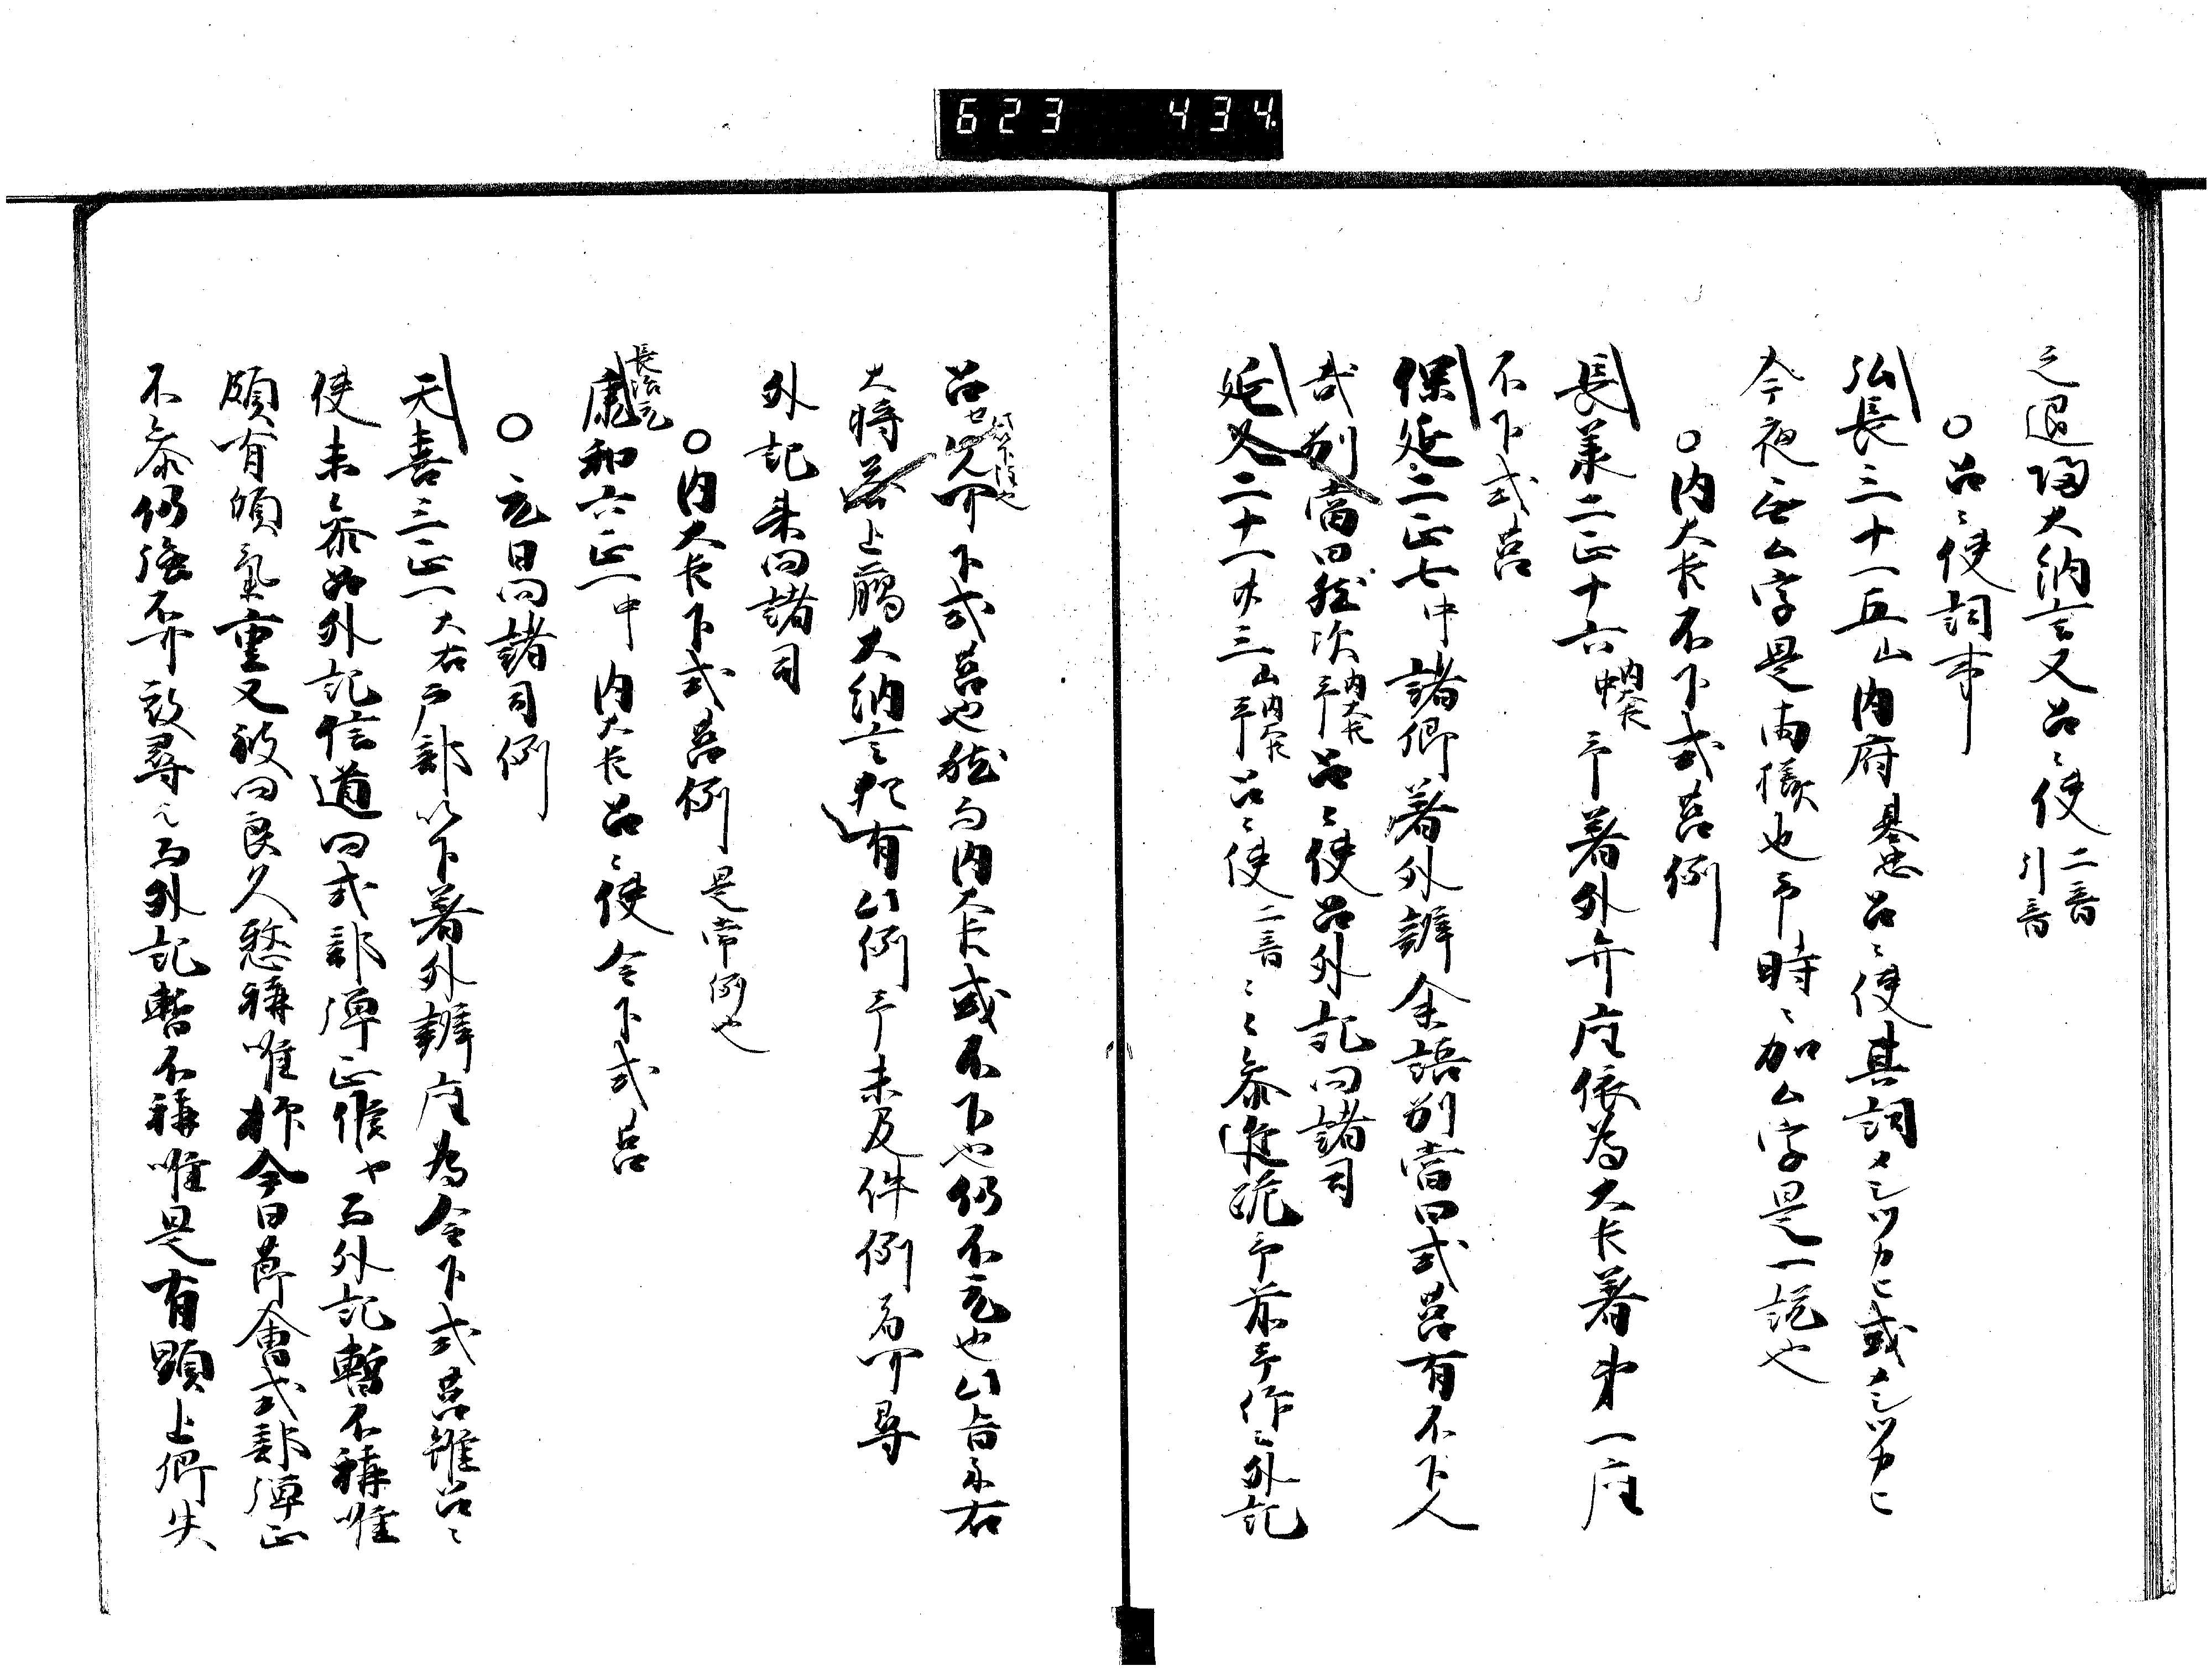 623 434
之退帰大納言又召々使 二音 引音
○召々使詞事
弘長三十一五山内府 基忠 召々使其詞メシツカヒ或メシツカヒ
今夜無ム字是両様也予時々加ム字是一説也
○内大臣不下式筥例
長業二正十六 内大臣 予著外弁座依為大臣著第一座
不下式筥
保延二正七中諸卿著外弁余語別當曰式筥有不下人
哉別當曰然次 内大臣 召々使召外記問諸司
延久二十一廿三 内大臣 召々使 二音 々々参進跪予前予作々外記
召也 下式筥也然而内大臣或不下也仍不下也此旨示右
大将 上臈大納言猶有此例予未及件例 尋
外記来問諸司
○内大臣下式筥例 是常例也
長治元
康和六正一中 内大臣召々使令下式筥
○元日問諸司例
天喜三正一 大右 戸部以下著外弁座為令下式筥雖召々
使未参召外記信道問式部弾正候ヤ而外記暫不称唯
頗有傾気重又被問良久愁称唯抑今日節會式部弾正
不参仍強不 被尋之而外記暫不称唯是有顕上卿失